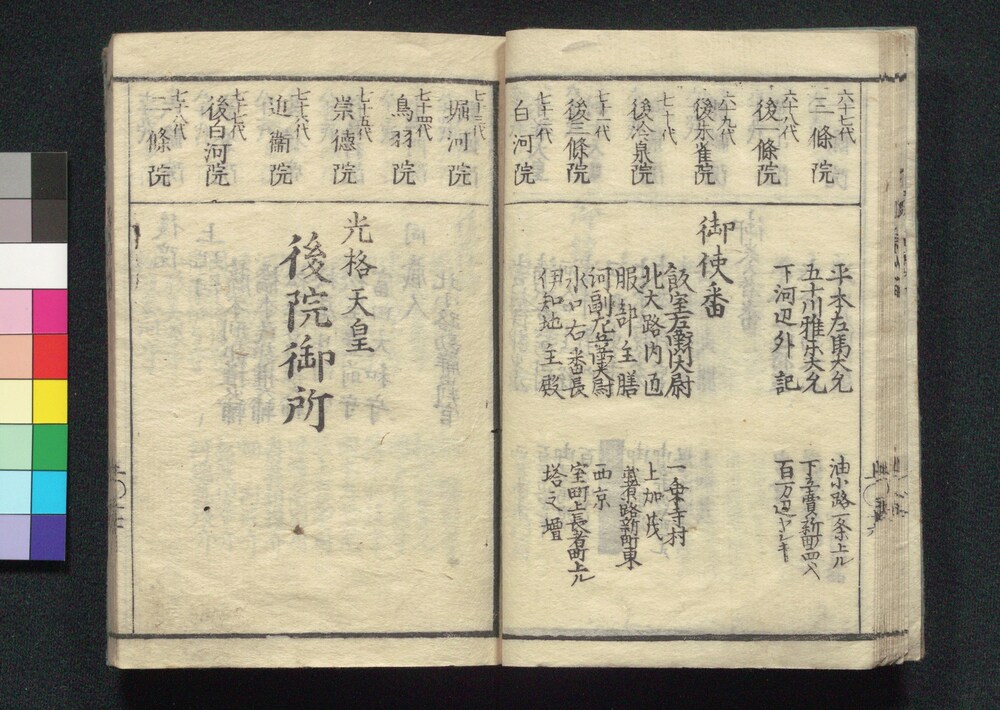 六十七代
三條院
六十八代
後一條院
六十九代
後朱雀院
七十代
後冷泉院
七十一代
後三條院
七十二代
白河院
平木左馬大允
五十川雅樂大允
下河辺外記
油小路一条上ル
下立賣新町西へ
百万辺ヤシキ
御使番
飯室左衛門大尉
北大路内匠
服部主膳
河副左兵衛大尉
水口右番長
伊知地主殿
一乗寺村
上加茂
武者小路新町東
西京
室町上長者町上ル
塔之壇
七十三代
堀河院
七十四代
鳥羽院
七十五代
崇德院
七十六代
近衞院
七十七代
後白河院
七十八代
二條院
光格天皇
後院御所